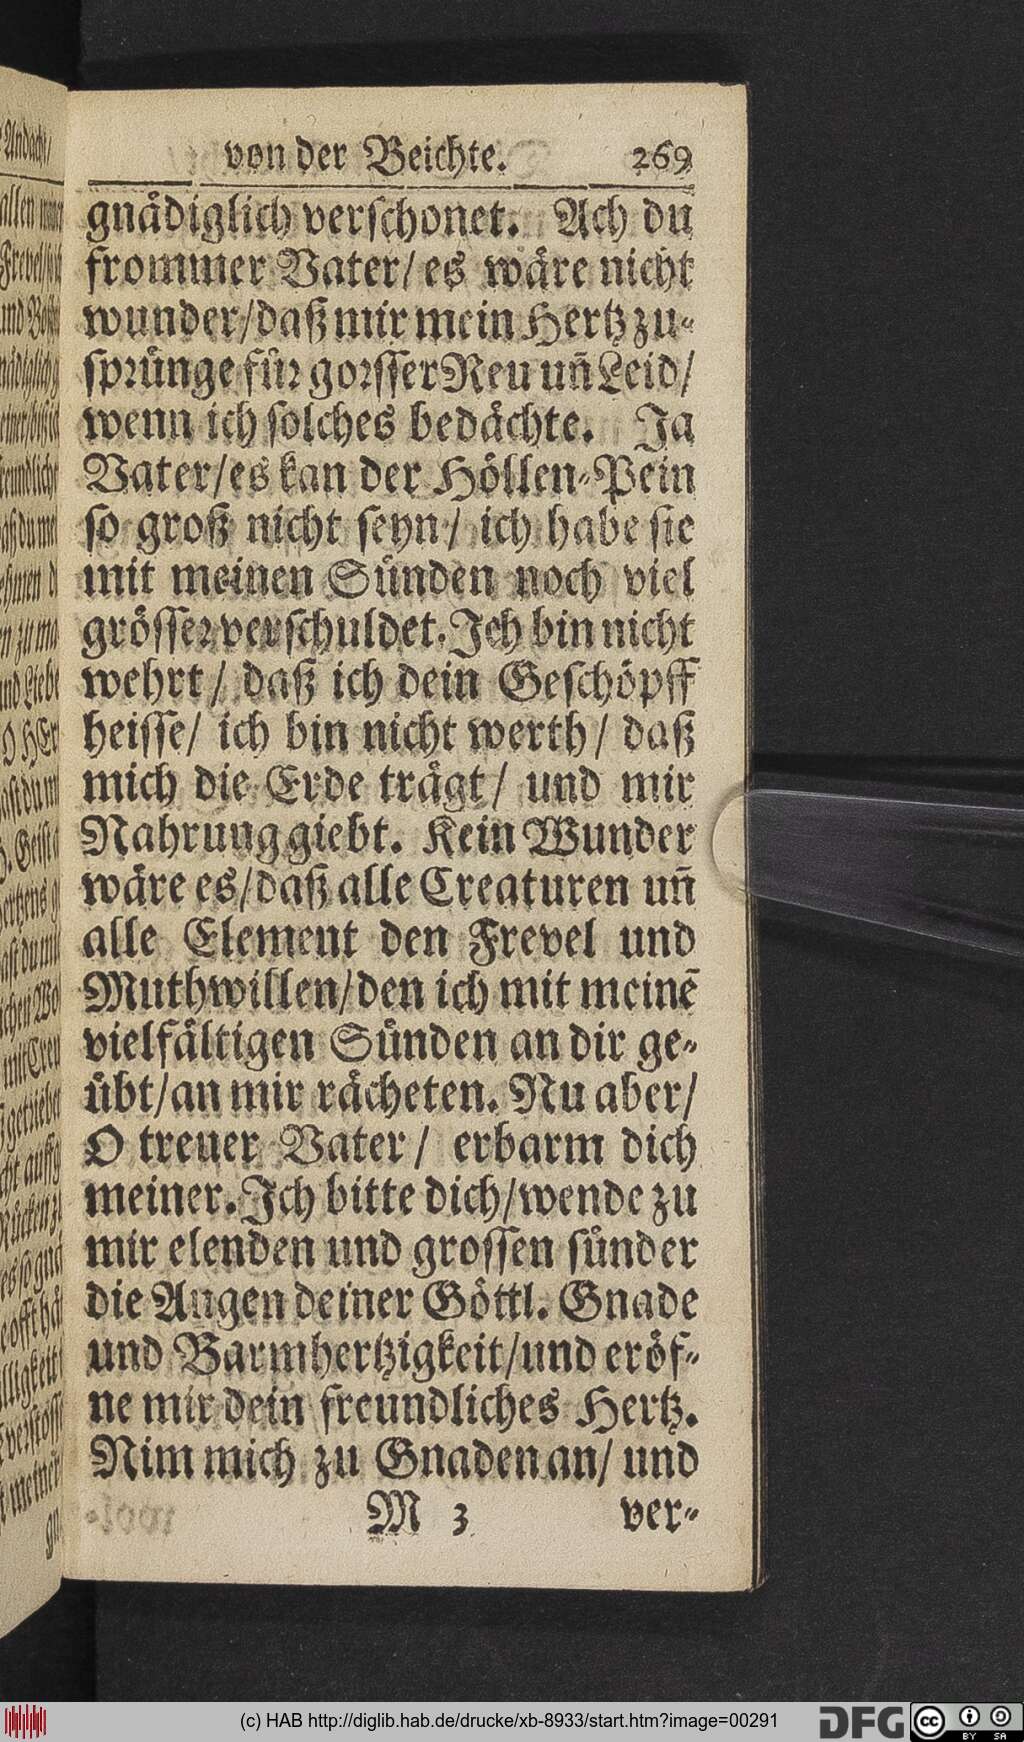 von der Beichte. 269
gnädiglich verschonet. Ach du
frommer Vater/ es wäre nicht
wunder/daß mir mein Hertz zu-
sprünge für gorsser Reu uñ Leid/
wenn ich solches bedächte. Ja
Vater/es kan der Höllen-Pein
so groß nicht seyn/ ich habe sie
mit meinen Sünden noch viel
grösser verschuldet. Ich bin nicht
wehrt/ daß ich dein Geschöpff
heisse/ ich bin nicht werth/ daß
mich die Erde trägt/ und mir
Nahrung giebt. Kein Wunder
wäre es/daß alle Creaturen uñ
alle Element den Frevel und
Muthwillen/den ich mit meinẽ
vielfältigen Sünden an dir ge-
übt/an mir rächeten. Nu aber/
O treuer Vater/ erbarm dich
meiner. Ich bitte dich/wende zu
mir elenden und grossen sünder
die Augen deiner Göttl. Gnade
und Barmhertzigkeit/und eröf-
ne mir dein freundliches Hertz.
Nim mich zu Gnaden an/ und
M 3 ver-
(c) HAB http://diglib.hab.de/drucke/xb-8933/start.htm?image=00291
DFG cc BY SA